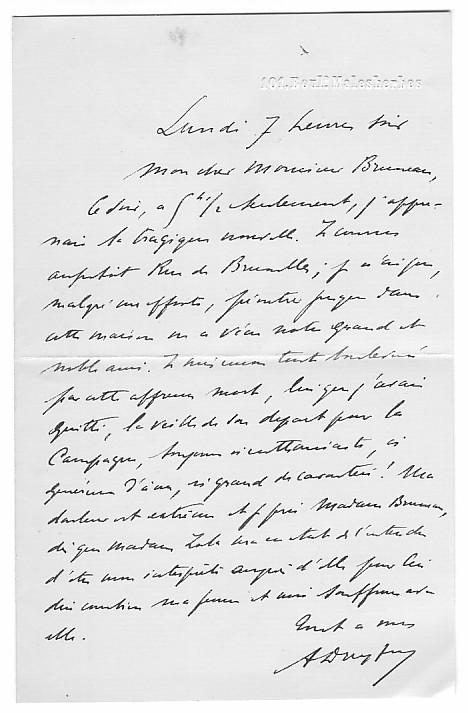 101, Boul.d Malesherbes
Lundi 7 heures soir
Mon cher Monsieur Bruneau,
Ce soir, a 5 h 1/2 seulement, j'appre-
nais la tragique nouvelle. Je courus
aussitôt Rue de Bruxelles ; je n'ai pu,
malgré mes efforts, pénétrer jusque dans
cette maison où a vécu notre grand et
noble ami. Je suis encore tout bouleversé
par cette affreuse mort, lui que j'avais
quitté, la veille de son départ pour la
Campagne, toujours si enthousiaste, si
généreux d'âme, si grand de caractère! Ma
douleur est extrême et je prie Madame Bruneau,
dès que Madame Zola sera en état de l'entendre
d'être mon interprète auprès d'elle pour lui
dire combien ma femme et moi souffrons avec
elle.
Tout a vous
A Dreyfus